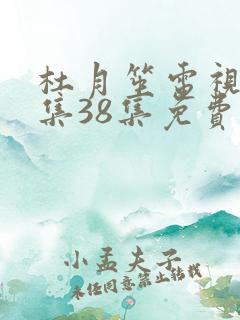 杜月笙電視
集38集免費
小孟夫子
未任同意禁止转载